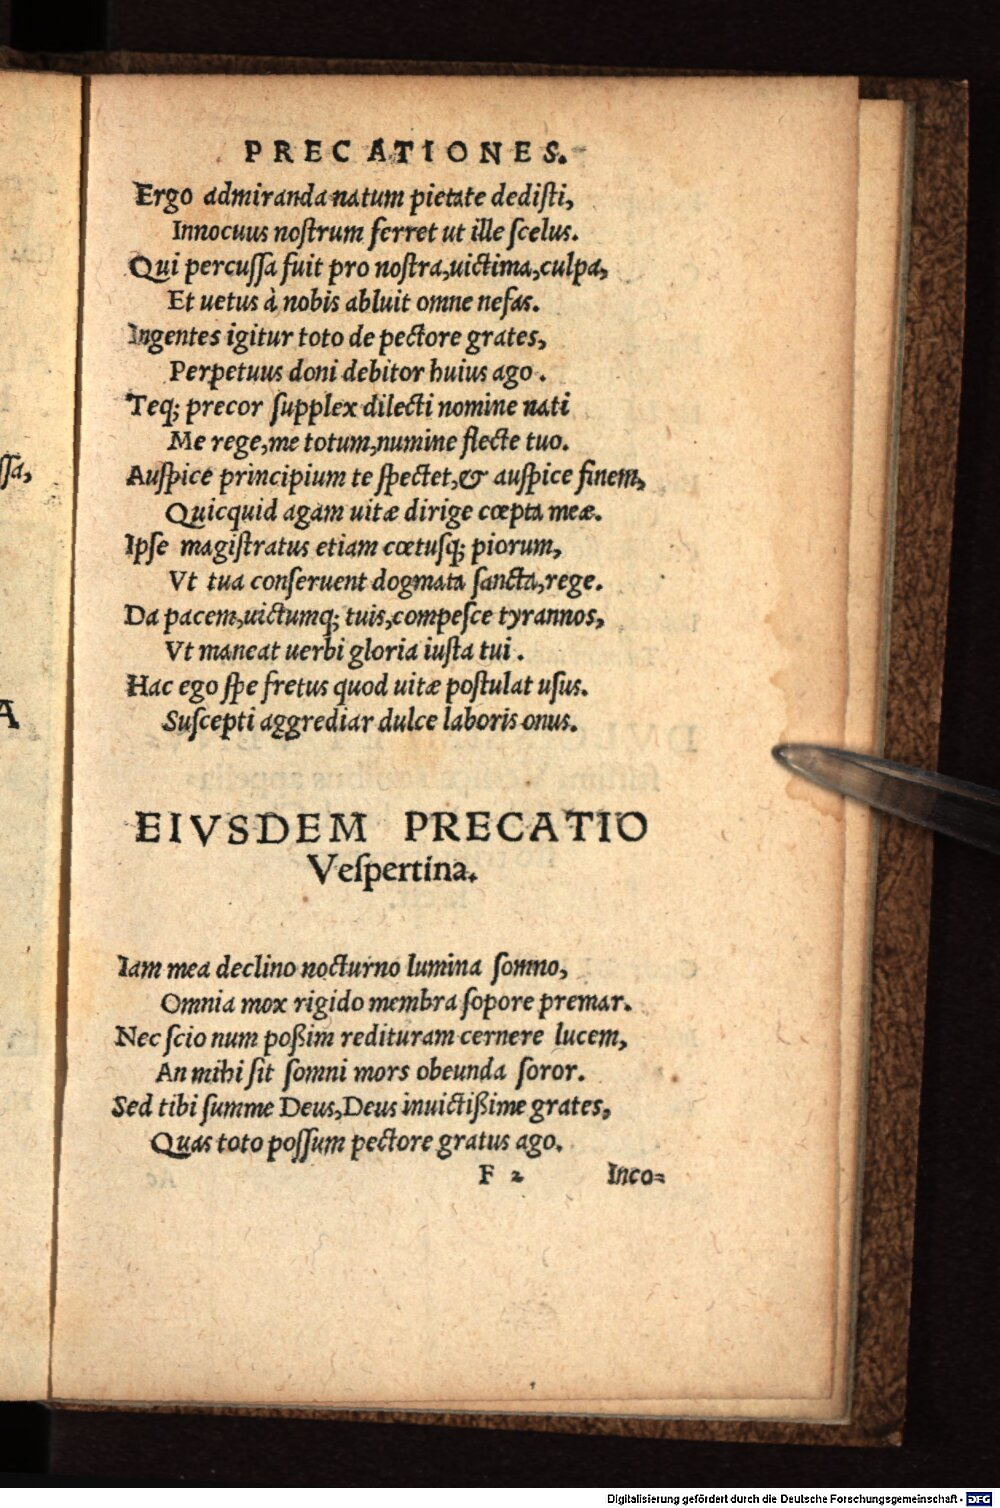 PRECATIONES.
Ergo admiranda natum pietate dediſti,
Innocuus noſtrum ferret ut ille ſcelus.
Qui percuſſa fuit pro noſtra,uictima,culpa,
Et uetus à nobis abluit omne nefas.
Ingentes igitur toto de pectore grates,
Perpetuus doni debitor huius ago.
Teq; precor ſupplex dilecti nomine nati
Me rege,me totum,numine flecte tuo.
Auſpice principium te ſpectet,& auſpice finem,
Quicquid agam uitæ dirige cœpta meæ.
Ipſe magiſtratus etiam cœtusq; piorum,
Vt tua conſeruent dogmata ſancta,rege.
Da pacem,uictumq; tuis,compeſce tyrannos,
Vt maneat uerbi gloria iuſta tui.
Hac ego ſpe fretus quod uitæ poſtulat uſus.
Suſcepti aggrediar dulce laboris onus.
EIVSDEM PRECATIO
Veſpertina.
Iam mea declino nocturno lumina ſomno,
Omnia mox rigido membra ſopore premar.
Nec ſcio num poßim redituram cernere lucem,
An mihi ſit ſomni mors obeunda ſoror.
Sed tibi ſumme Deus,Deus inuictißime grates,
Quas toto poſſum pectore gratus ago.
F 2 Inco=
ſſa,
A
Digitalisierung gefördert durch die Deutsche Forschungsgemeinschaft - DFG